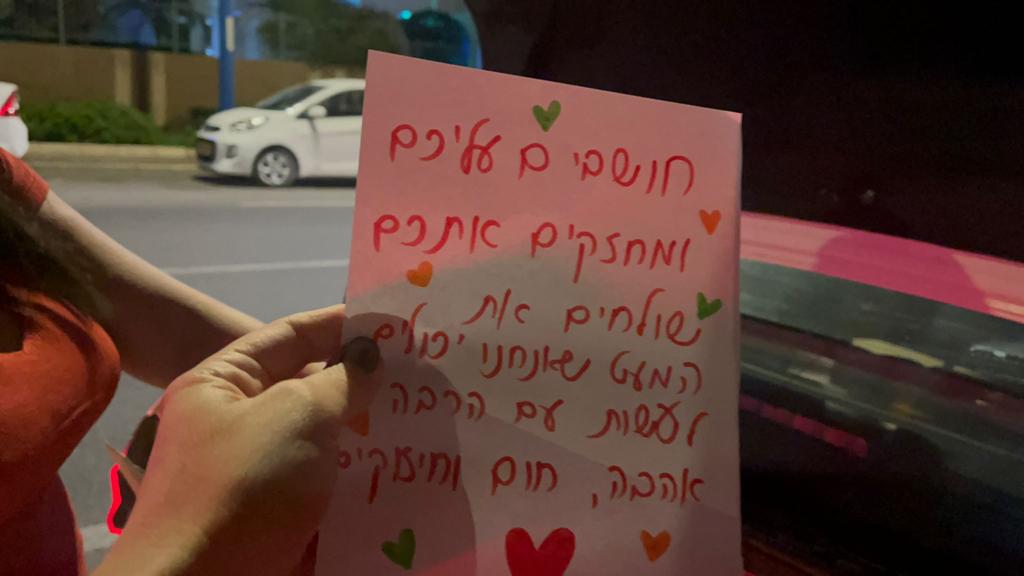 חושבים עליכם
ומחזקים אתכם
שולחים את
המעט שאנחנו יכולים
לעשות עם הרבה
אהבה, חום וחיזוקים